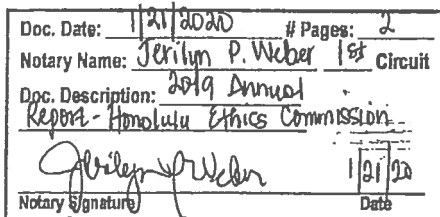 Doc. Date: 1/21/2020 # Pages: 2
Notary Name: Jerilyn P. Weber 1st Circuit
Doc. Description: 2019 Annual
Report - Honolulu Ethics Commission
Jerilyn P Weber 1/21/20
Notary Signature Date